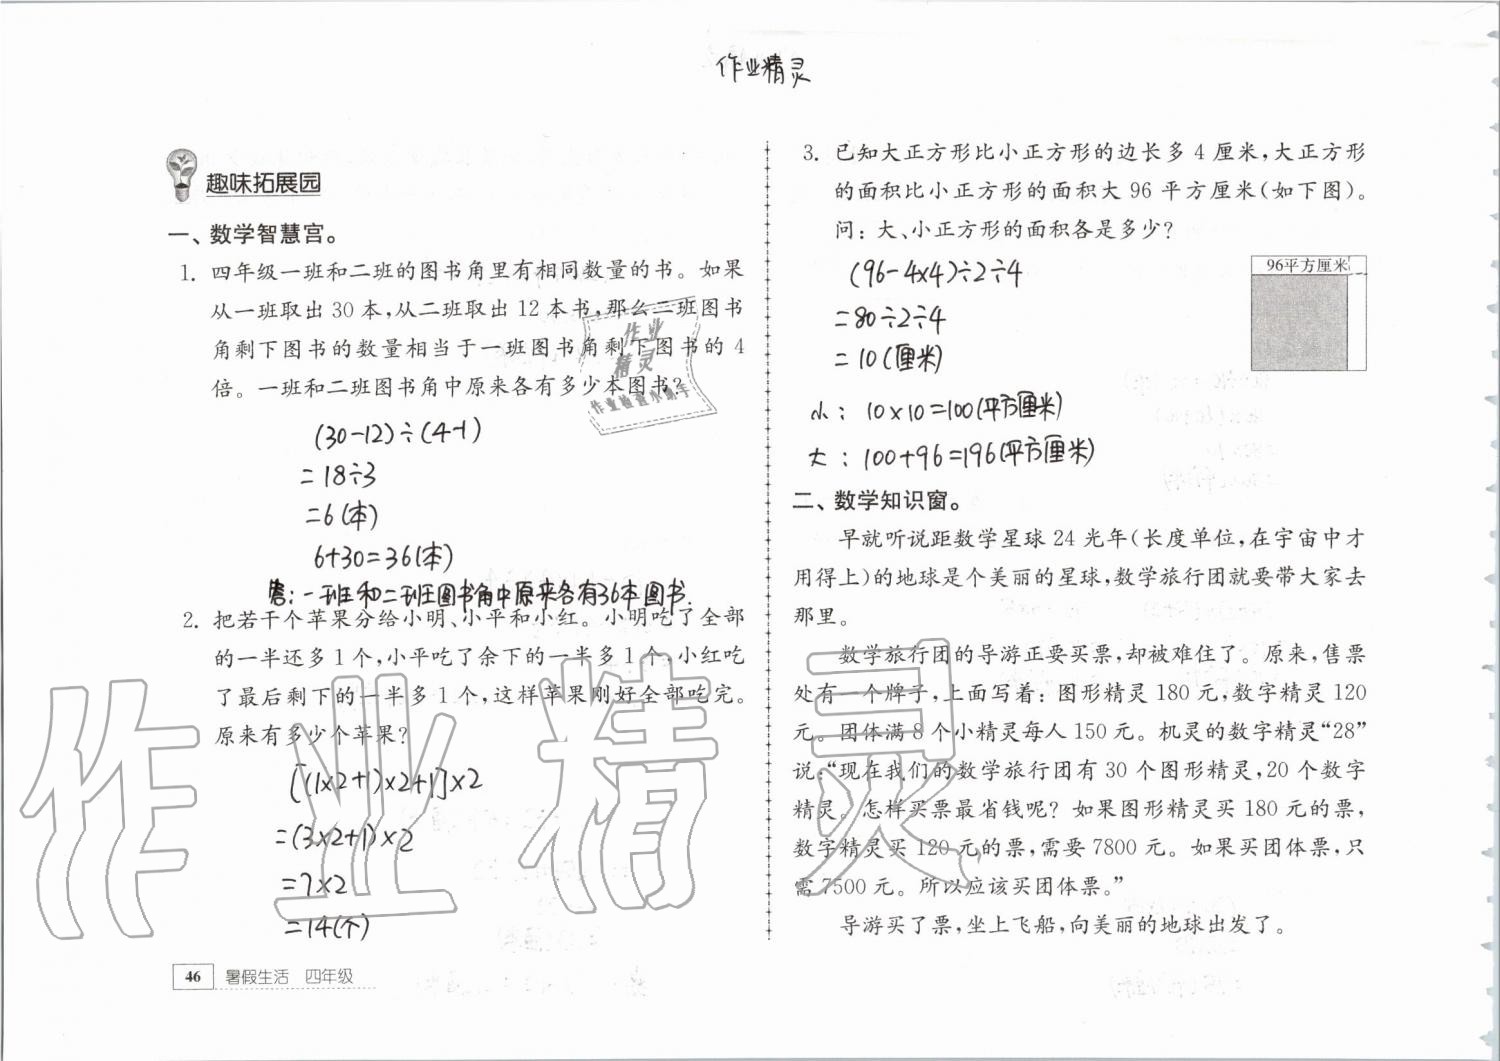 作业精灵
趣味拓展园
一、数学智慧宫。
1. 四年级一班和二班的图书角里有相同数量的书。如果
从一班取出 30 本,从二班取出 12 本书,那么二班图书
角剩下图书的数量相当于一班图书角剩下图书的 4
倍。一班和二班图书角中原来各有多少本图书?
(30-12)÷(4-1)
=18÷3
=6(本)
6+30=36(本)
答:一班和二班图书角中原来各有36本图书.
2. 把若干个苹果分给小明、小平和小红。小明吃了全部
的一半还多 1 个,小平吃了余下的一半多 1 个,小红吃
了最后剩下的一半多 1 个,这样苹果刚好全部吃完。
原来有多少个苹果?
[(1×2+1)×2+1]×2
=(3×2+1)×2
=7×2
=14(个)
46 暑假生活 四年级
3. 已知大正方形比小正方形的边长多 4 厘米,大正方形
的面积比小正方形的面积大 96 平方厘米(如下图)。
问:大、小正方形的面积各是多少?
96平方厘米
(96-4×4)÷2÷4
=80÷2÷4
=10(厘米)
小:10×10=100(平方厘米)
大:100+96=196(平方厘米)
二、数学知识窗。
早就听说距数学星球 24 光年(长度单位,在宇宙中才
用得上)的地球是个美丽的星球,数学旅行团就要带大家去
那里。
数学旅行团的导游正要买票,却被难住了。原来,售票
处有一个牌子,上面写着:图形精灵 180 元,数字精灵 120
元。团体满 8 个小精灵每人 150 元。机灵的数字精灵“28”
说:“现在我们的数学旅行团有 30 个图形精灵,20 个数字
精灵。怎样买票最省钱呢?如果图形精灵买 180 元的票,
数字精灵买 120 元的票,需要 7800 元。如果买团体票,只
需 7500 元。所以应该买团体票。”
导游买了票,坐上飞船,向美丽的地球出发了。
作业
精灵
作业精灵小助手
作业精灵